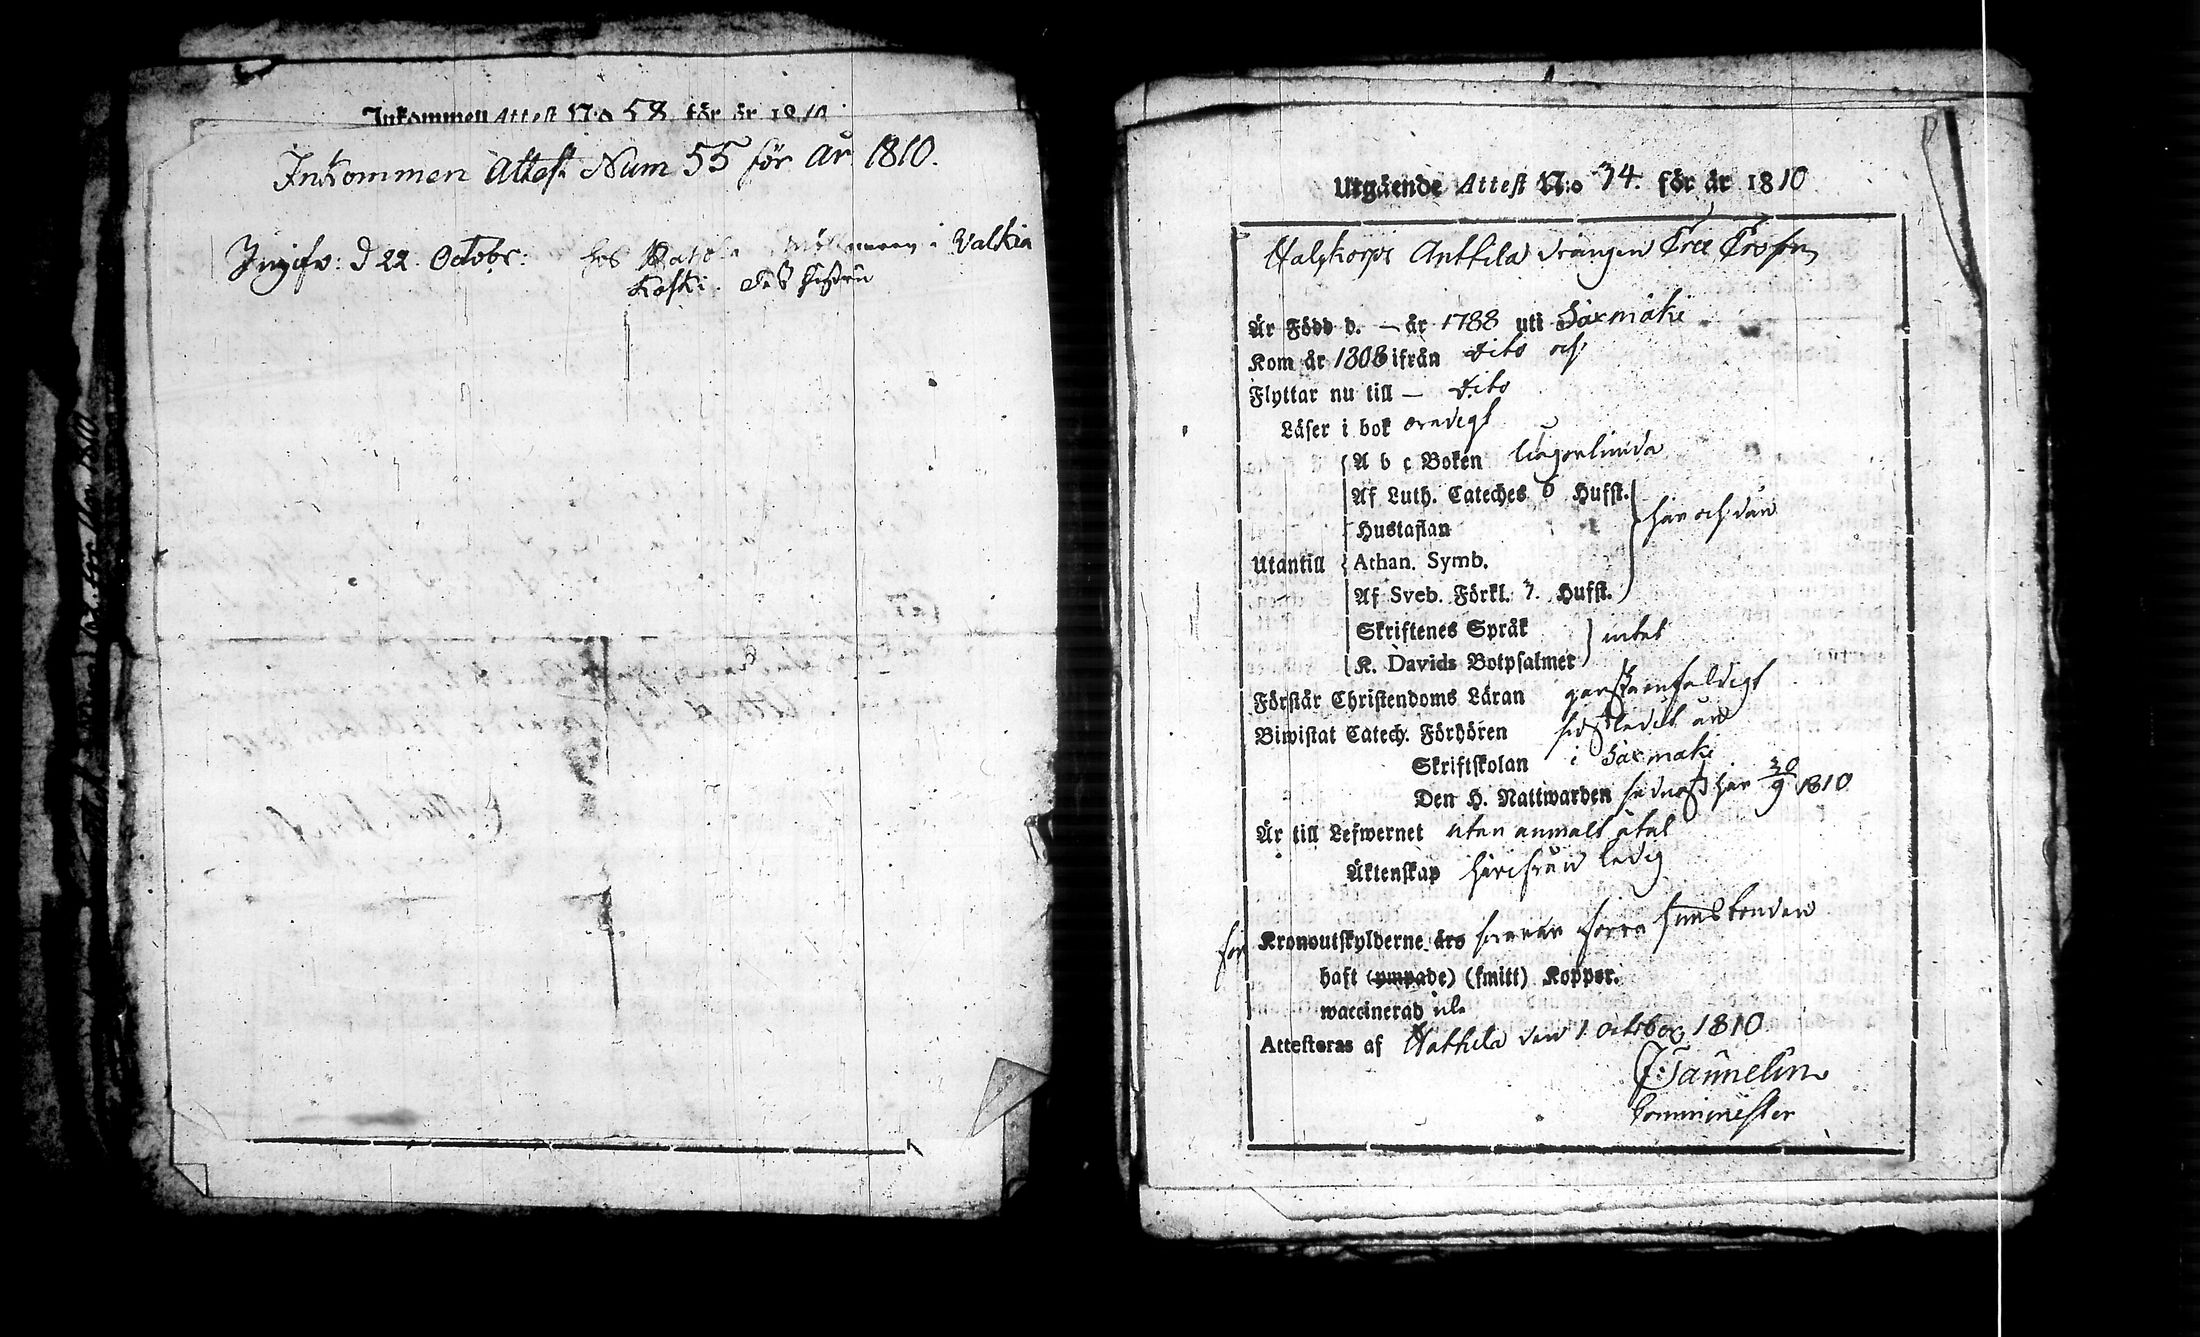 Inkommen Attest N:o 58 för år 1810
Inkommen Attest Num 55 för år 1810.
Ingifw: d 22 Octobr: hos i Valkia
koski
Utgående Attest N:o 34. för år 1810
Halkorpi Anttila drängen
Är Född d. — år 1788 uti Saxmäki
Kom år 1808 ifrån dito och
Flyttar nu till — dito
Läser i bok oredigt
A b c Boken någorlunda
Af Luth. Cateches 6 Hufst.
här och där
Hustaflan
Utantill Athan. Symb.
Af Sveb. Förkl. 7. Hufst.
Skriftenes Språk
intet
K. Davids Botpsalmer
Förstår Christendoms Läran ganska enfaldigt
Biwistat Catech. Förhören sistledit år
Skriftskolan i Saxmaki
Den H. Nattwarden sednast här 30/9 1810
Är till Lefwernet utan anmält åtal
Äktenskap härifrån ledig
för Kronoutskylderne års svarar förra husbonden
haft (ympade) (smitt) Koppor.
waccinerad
Attesteras af Hattula den 1 October 1810
J: Tannelin
Comminister